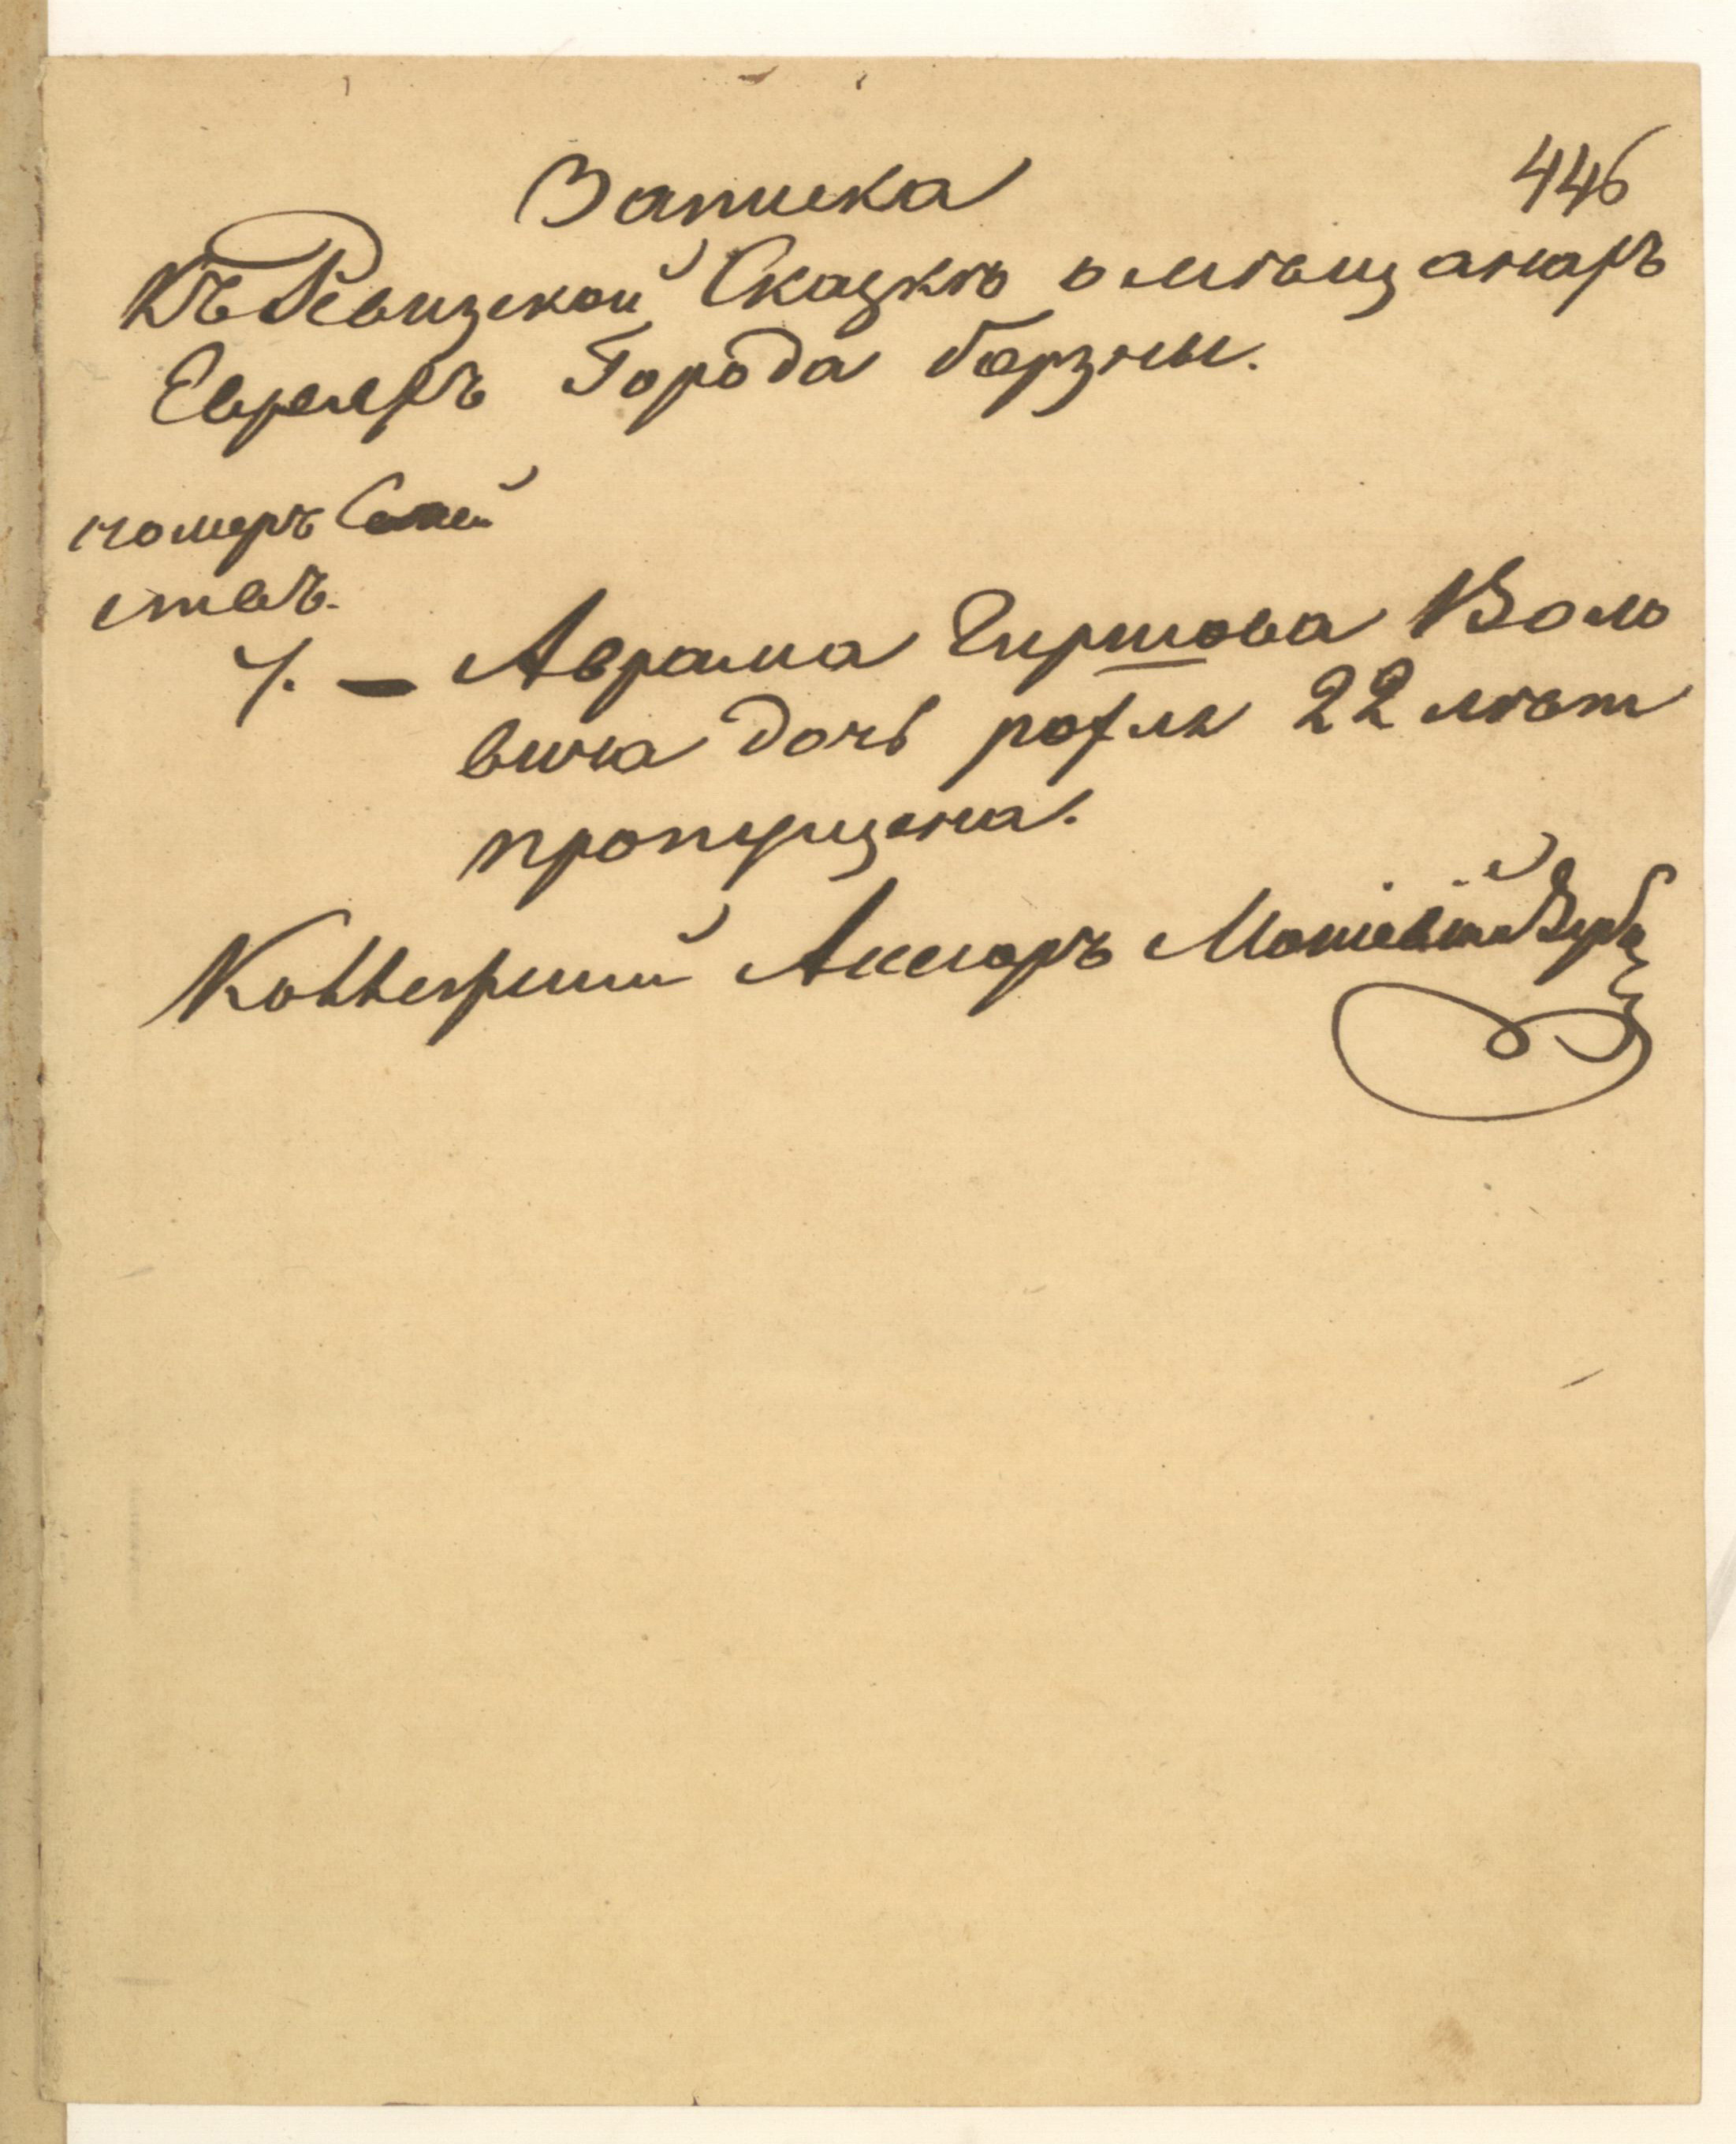 446
Записка
Къ Ревизской Сказкѣ о мѣщанахъ
Евреяхъ Города Борзны.
номеръ Семей
ствъ.
7. — Аврама Гиршова Воль
вича дочь рохля 22 лѣт
пропущена.
Коллежский Асесоръ